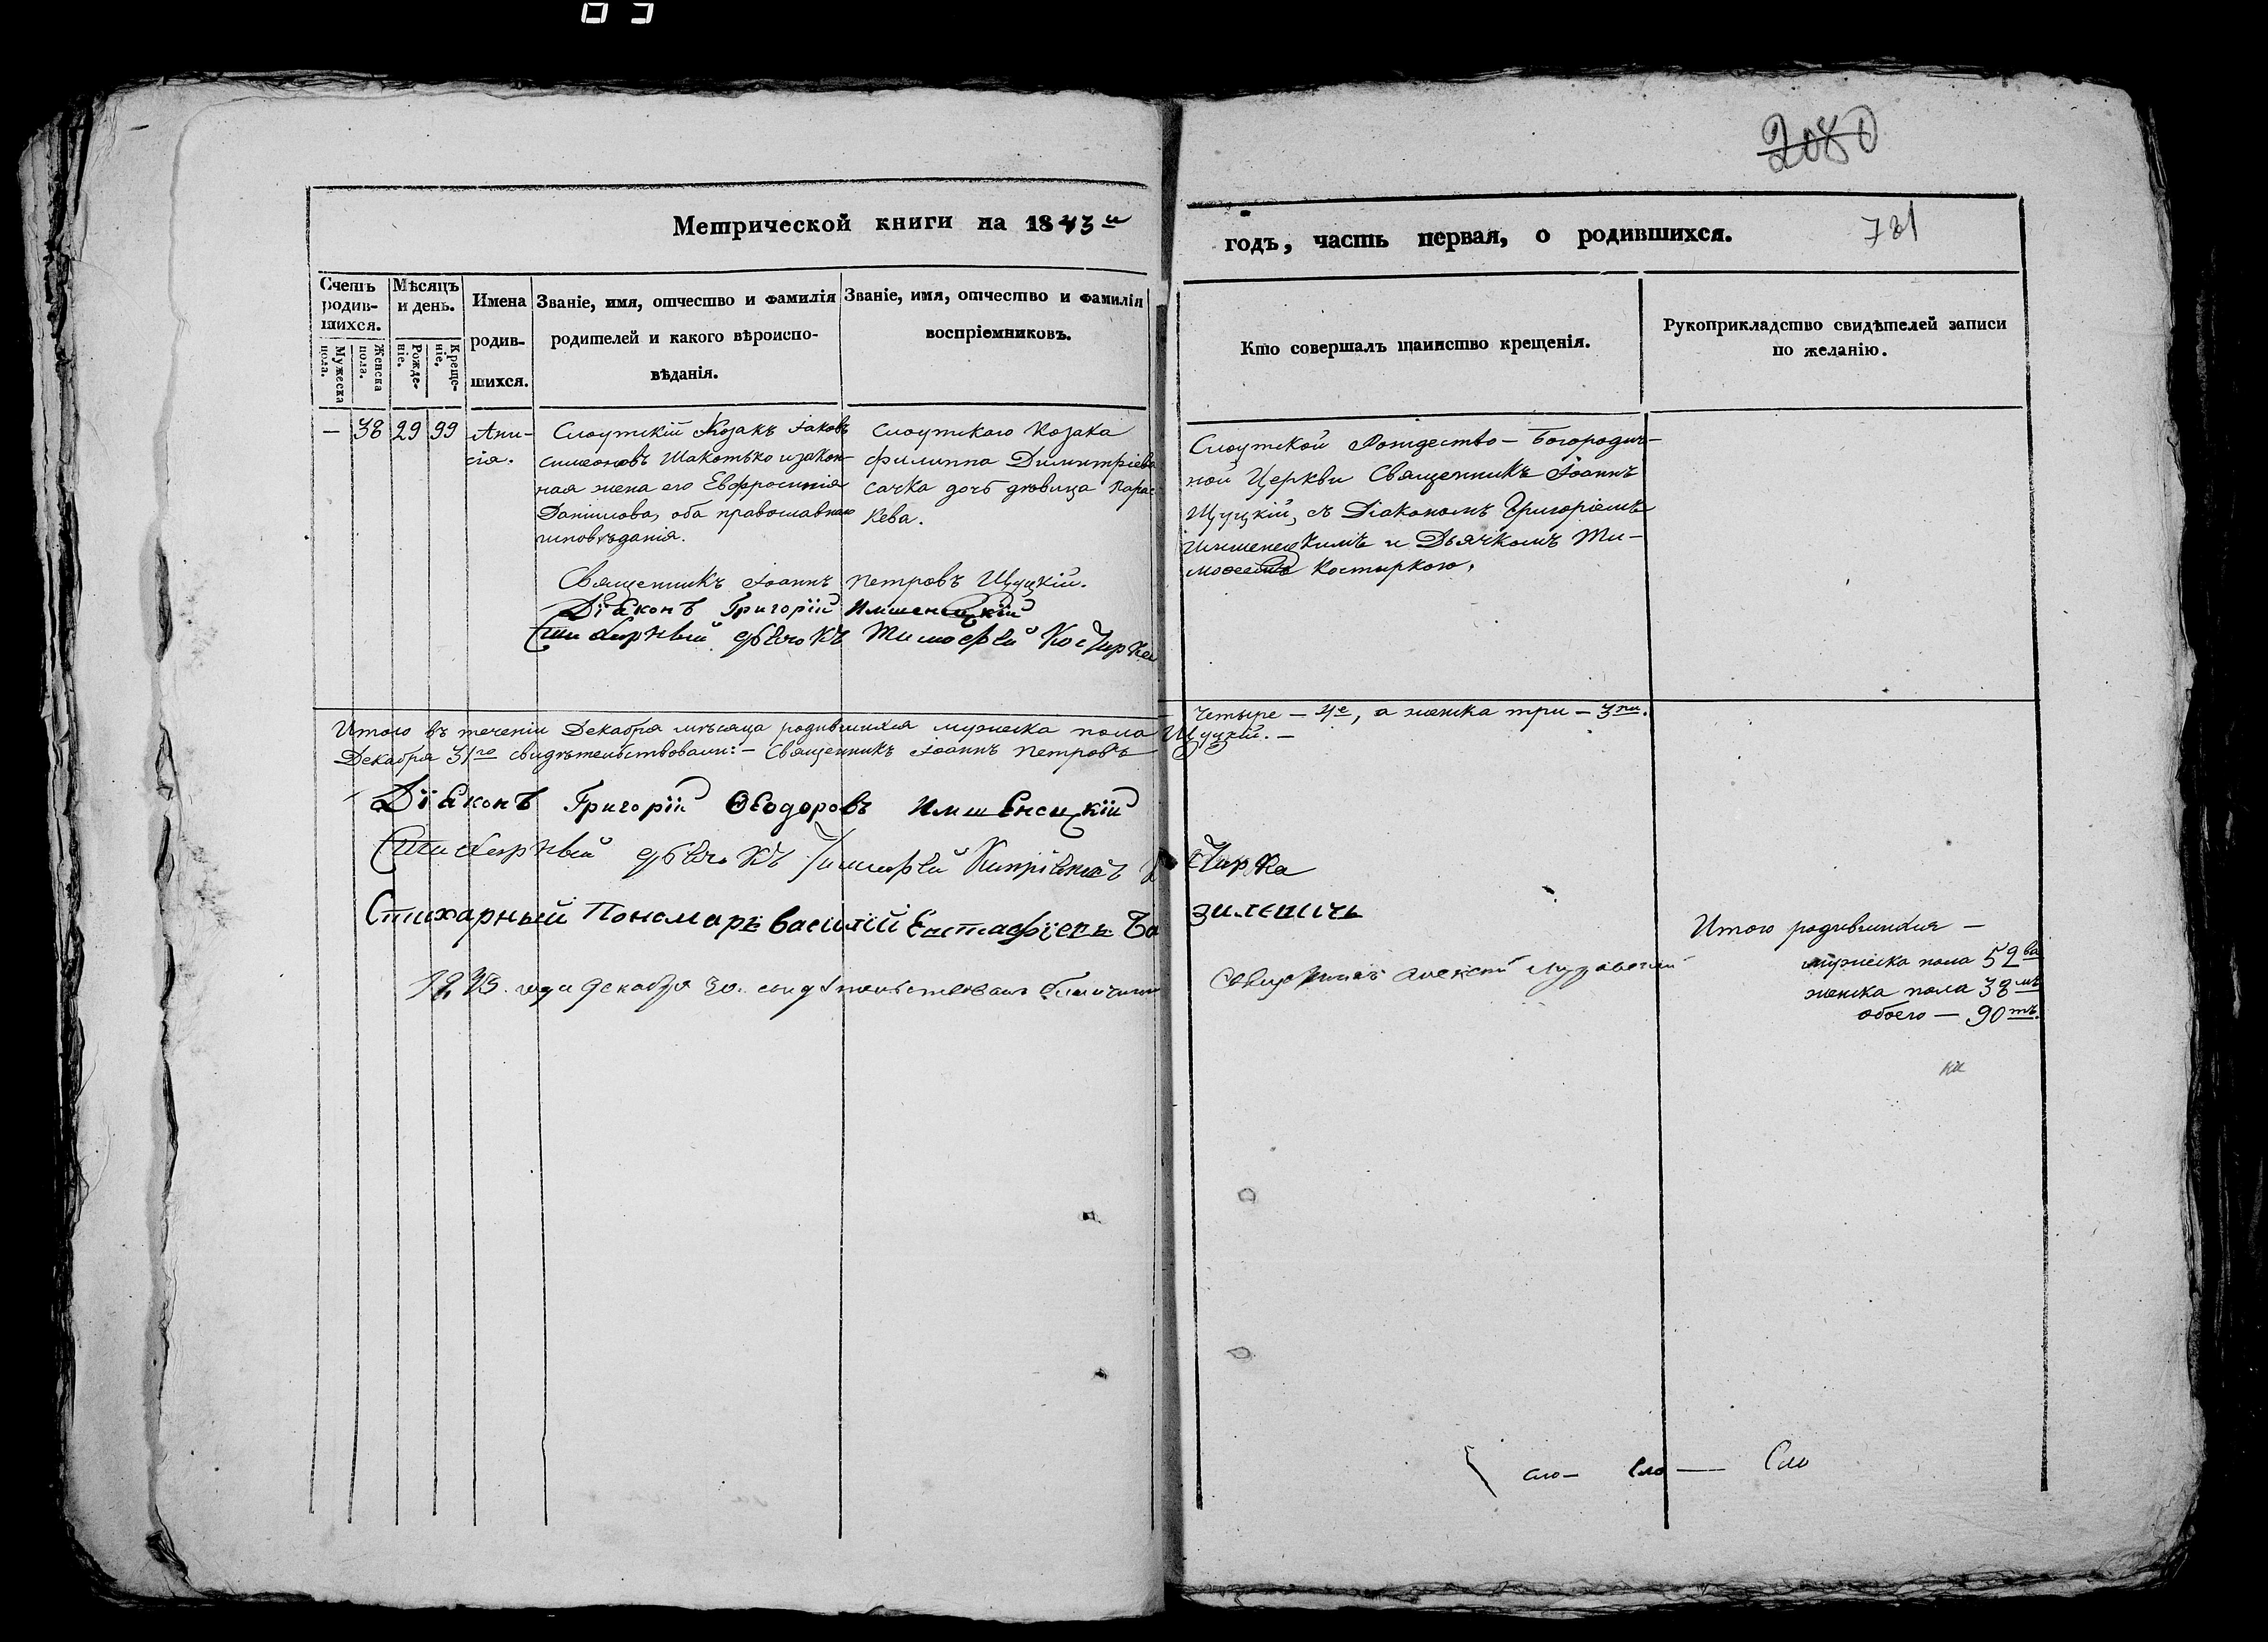 2080
Метрической книги на 1843й
годъ, часть первая, о родившихся.
781
Счетъ родив-шихся.
Мужеска пола.
Женска пола.
Мѣсяцъ и день.
Рожде-ніе.
Креще-ніе.
Имена
родив-
шихся.
Званіе, имя, отчество и фамилія
родителей и какого вѣроиспо-
вѣданія.
Званіе, имя, отчество и фамилія
воспріемниковъ.
Кто совершалъ таинство крещенія.
Рукоприкладство свидѣтелей записи
по желанію.
— 38 29 99
Ани-
сія.
Слоутскій Козакъ Іаковъ
Симеоновъ Шакотько изакон-
ная жена его Евфросинія
Даніилова, оба православнаго
исповѣданія.
Слоутскаго Козака
Филиппа Димитріева
Сачка дочь дѣвица Парас-
кева.
Слоутской Рождество-Богородич-
ной Церкви Священникъ Іоаннъ
Щуцкій, съ Діакономъ Григоріемъ
Имшенецкимъ и Дьячкомъ Ти-
мофеемъ Костыркою.
Священникъ Іоаннъ Петровъ Щуцкій.
Діаконъ Григорій Имшенецкій
Стихарный дьячокъ Тимофей Костирка
Итого въ теченіи Декабря мѣсяца родившихся мужеска пола четыре — 4е, а женска три — 3ри.
Декабря 31го свидѣтельствовали: — Священникъ Іоаннъ Петровъ Щуцкій. —
Діаконъ Григорій Ѳеодоровъ Имшенецкій
Стихарный дьячокъ Тимофей Кипріановъ Костирка
Стихарный Пономарь Василій Евстафіевъ Базилевичь
1843. года декабря 30. свидѣтельствовалъ Благочинный Священникъ Алексій
Итого родившихся —
мужеска пола 52ва
женска пола 38мъ
обоего — 90тъ.
Сло— Сло — Сло